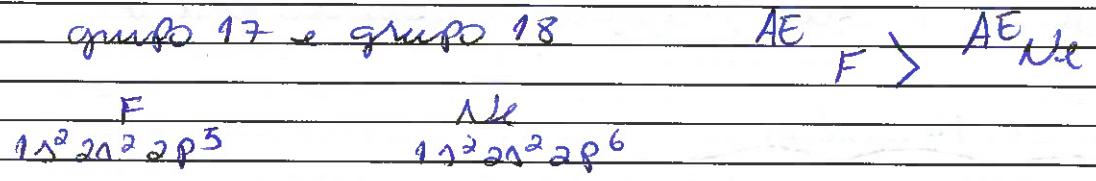 grupo 17 e grupo 18 AE F > AE Ne
F Ne
1s² 2s² 2p⁵ 1s² 2s² 2p⁶